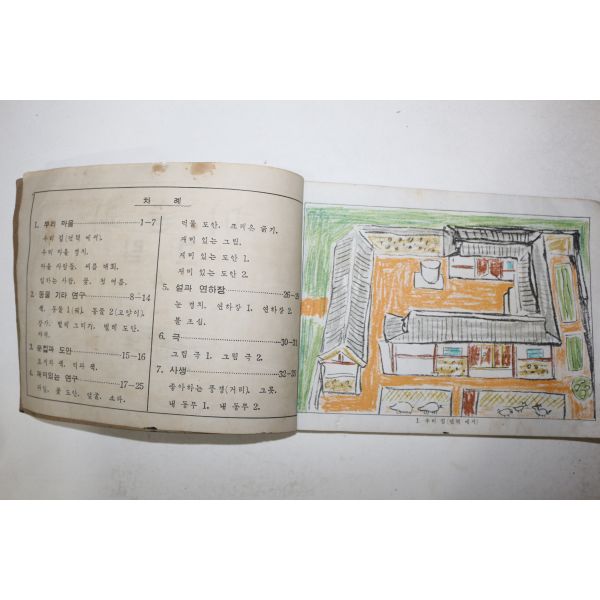 차 례
1. 우리 마을 1-7
우리 집(언덕 에서).
우리 마을 경치.
마을 사람들. 씨름 대회.
일하는 사람. 꿈. 첫 여름.
2. 동물 기타 연구 8-14
색. 동물 1(닭) 동물 2(고양이).
잡기. 벌레 그리기. 벌레 도안.
3. 풍접과 도안 15-16
4. 재미있는 연구 17-25
과일. 꽃 도안. 얼굴. 소라.
먹물 도안. 크레용 긁기.
재미 있는 그림.
재미 있는 도안 1.
재미 있는 도안 2.
5. 설과 연하장 26-2
눈 경치. 연하장 1. 연하장 2
불 조심.
6. 극 30-31
그림 극 1. 그림 극 2.
7. 사생 32-3
좋아하는 풍경(거리). 그릇.
내 동무 1. 내 동무 2.
1. 우리 집(언덕 에서)